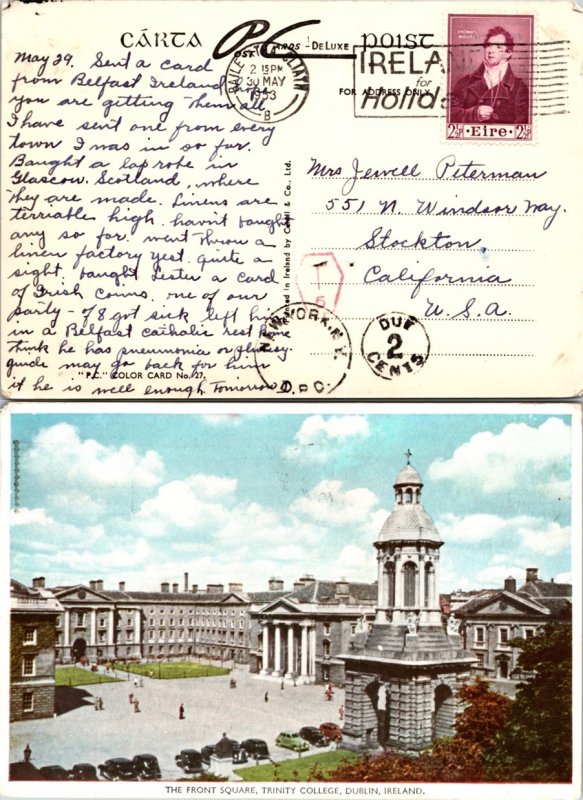 CÁRTA POIST
PC
POST CARDS · DeLUXE
FOR ADDRESS ONLY
BAILE ÁTHA CLIATH
2 15PM
30 MAY
1953
B
IRELA
for
Holid
THOMAS MOORE
2½ · Eire · 2½
May 29. Sent a card
from Belfast Ireland hope
you are getting them all
I have sent one from every
town I was in so far.
Baught a lap robe in
Glascow, Scotland, where
they are made. Linens are
terriable high. havn't baught
any so far. went threw a
linen factory yest. quite a
sight, baught Lester a card
of Irish Coins. one of our
party - of 8 got sick left him
in a Belfast catholic rest home
think he has pneumonia or plurisy.
guide may go back for him
if he is well enough, tomorrow
Mrs Jewell Peterman
551 N. Windsor Way.
Stockton
California
U.S.A.
Printed in Ireland by Cahill & Co., Ltd.
T
5
NEW YORK, N.Y.
DUE
2
CENTS
"P.C." COLOR CARD No. 27.
THE FRONT SQUARE, TRINITY COLLEGE, DUBLIN, IRELAND.